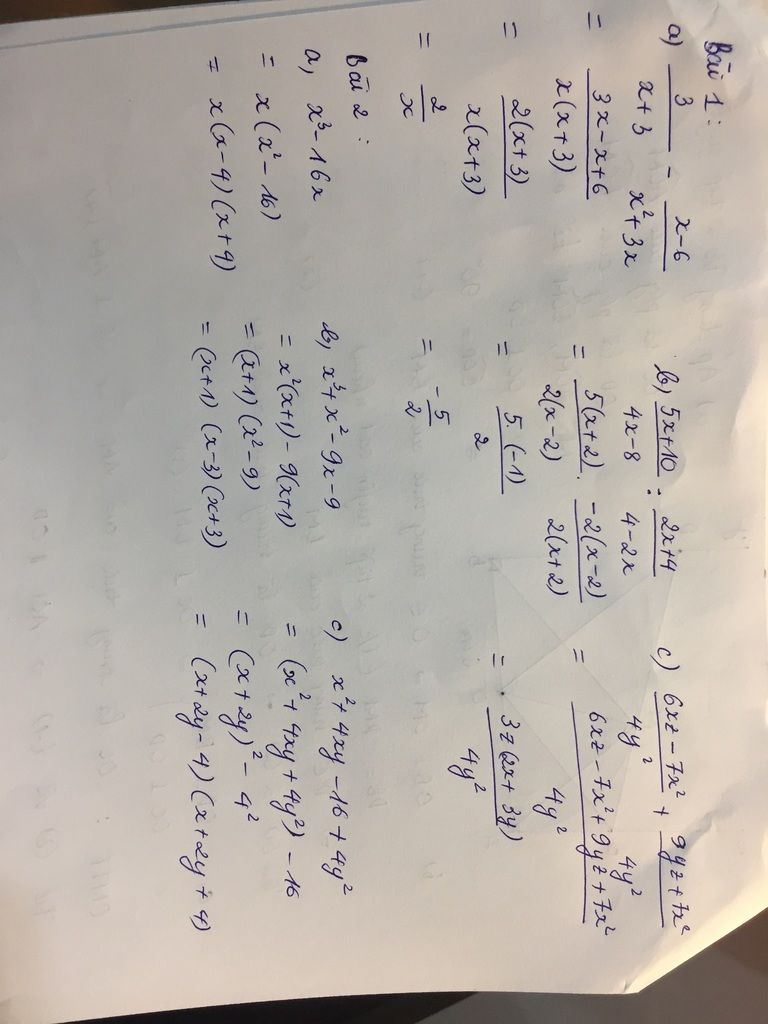 Bài 1 :
a) 3/(x+3) - (x-6)/(x²+3x)
= (3x-x+6)/(x(x+3))
= 2(x+3)/(x(x+3))
= 2/x
b) (5x+10)/(4x-8) : (2x+4)/(4-2x)
= 5(x+2)/(2(x-2)) . -2(x-2)/(2(x+2))
= 5.(-1)/2
= -5/2
c) (6xz-7x²)/(4y²) + (9yz+7x²)/(4y²)
= (6xz-7x²+9yz+7x²)/(4y²)
= 3z(2x+3y)/(4y²)
Bài 2 :
a, x³-16x
= x(x²-16)
= x(x-4)(x+4)
b, x³+x²-9x-9
= x²(x+1)-9(x+1)
= (x+1)(x²-9)
= (x+1)(x-3)(x+3)
c) x²+4xy-16+4y²
= (x²+4xy+4y²)-16
= (x+2y)²-4²
= (x+2y-4)(x+2y+4)